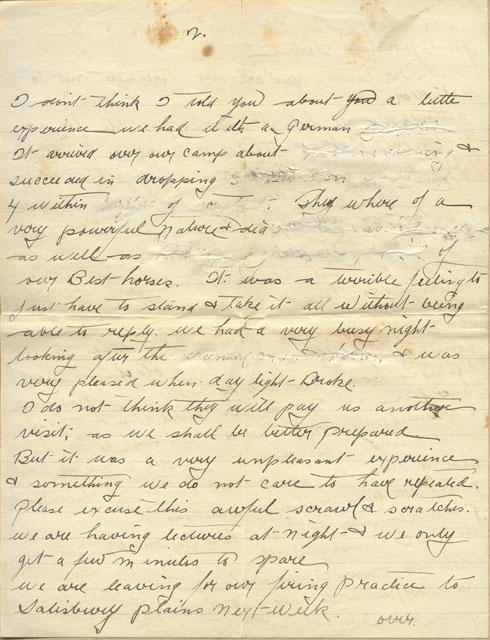 2.
I don't think I told you about you a little
experience we had with a German
It arrived over our camp about &
succeeded in dropping
4 within They where of a
very powerful nature & did
as well as of
our Best horses. It was a terrible feeling to
just have to stand & take it all without being
able to reply. we had a very busy night
looking after the & was
very pleased when day light Broke.
I do not think they will pay us another
visit, as we shall be better prepared
But it was a very unpleasant experience
& something we do not care to have repeated.
please excuse this awful scrawl & scratches.
we are having lectures at night & we only
get a few minutes to spare
we are leaving for our firing practice to
Salisbury plains next week. over